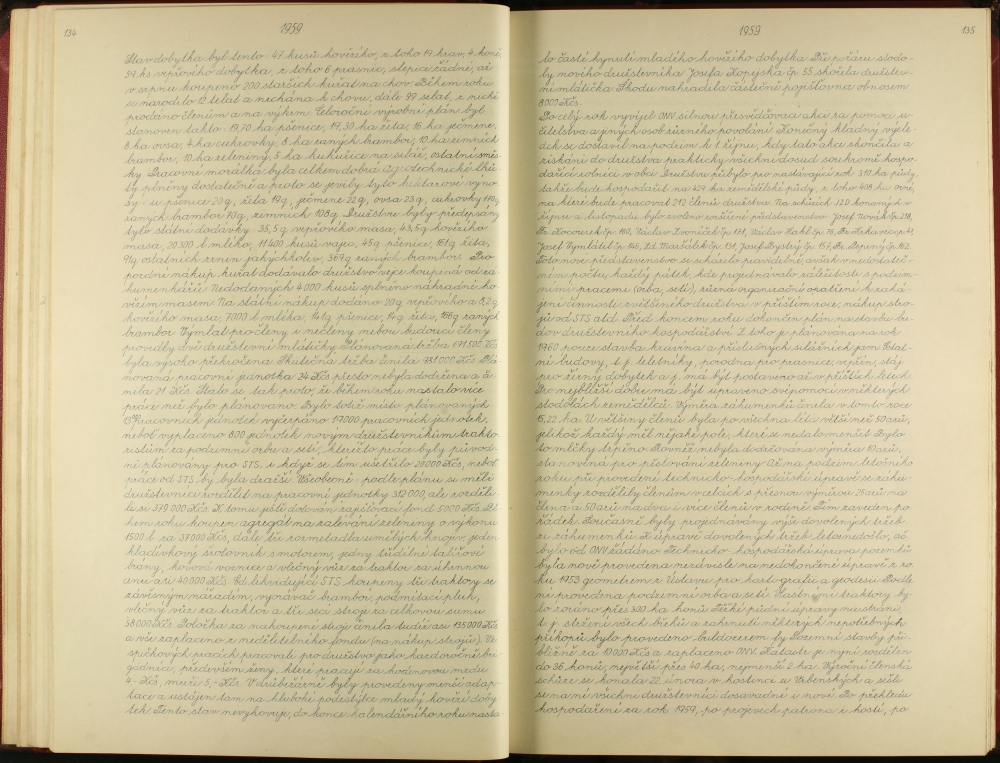 134
1959
Stav dobytka byl tento: 47 kusů hovězího, z toho 19 krav, 4 koní,
59 ks vepřového dobytka, z toho 6 prasnic, slepice žádné, až
v srpnu koupeno 200 starších kuřat na chov. Během roku
se narodilo 12 telat a nechána k chovu, dále 99 selat, z nichž
prodáno členům a na výkrm. Celoroční výrobní plán byl
stanoven takto: 19,70 ha pšenice, 19,30 ha žita, 16 ha ječmene,
8 ha ovsa, 4 ha cukrovky, 8 ha raných brambor, 10 ha zemních
brambor, 10 ha zeleniny, 5 ha kukuřice na siláž, ostatní směs-
ky. Pracovní morálka byla celkem dobrá. Agrotechnické lhů-
ty plněny dostatečně a proto se jevily tyto hektarové výno-
sy: u pšenice 20 q, žita 19 q, ječmene 22 q, ovsa 23 q, cukrovky
raných brambor zemních 108 q. Družstvu byly předepsány
tyto státní dodávky: 35,5 q vepřového masa, 43,5 q hovězího
masa, 20300 l mléka, 11400 kusů vajec, 45 q pšenice, 161 q žita,
91 q ostatních zrnin jakýchkoliv, 369 q raných brambor. Pro
pozdní nákup kuřat dodávalo družstvo vejce koupená od zá-
humenkářů. Nedodaných 4000 kusů splněno náhradně ho-
vězím masem. Na státní nákup dodáno 20 q vepřového a 8,2 q
hovězího masa, 7000 l mléka, 141 q pšenice, 14 q žita, 166 q raných
brambor. Výmlat pro členy i nečleny nebou budoucí členy
provedly dvě družstevní mlátičky. Plánovaná tržba 671.505 Kčs
byla vysoko překročena. Skutečná tržba činila 981000 Kčs. Plá-
novaná pracovní jednotka 24 Kčs přesto nebyla dodržena a či-
nila 21 Kčs. Stalo se tak proto, že během roku nastalo více
práce než bylo plánovano. Bylo totiž místo plánovaných
13000 pracovních jednotek vyčerpáno 19000 pracovních jednotek,
neboť vyplaceno 800 jednotek novým družstevníkům trakto-
ristům za podzimní orbu a setí, kteréžto práce byly původ-
ně plánovány pro STS, i když se tím ušetřilo 28000 Kčs, neboť
práce od STS by byla dražší. Všeobecně: podle plánu si měli
družstevníci rozdělit na pracovní jednotky 312000, ale rozděli-
li si 399000 K, k tomu ještě dotován zajišťovací fond 5000 Kčs. Bě-
hem roku koupen agregát na zalévání zeleniny o výkonu
1500 l za 37000 Kčs, dále tři rozmetadla umělých hnojiv, jeden
kladívkový šrotovník s motorem, jedny třídílné talířové
brány, kovový vornice a vlečný vůz za traktor za úhrnnou
cenu asi 40000 Kčs. Od likvidující STS koupeny tři traktory se
závěsným nářadím, vyorávač brambor, podmítací pluh,
vlečný vůz za traktor a tři secí stroje za celkovou sumu
58000 Kčs. Položka za nakoupené stroje činila tudíž asi 135000 Kčs
a vše zaplaceno z nedělitelného fondu (na nákup strojů). Ve
špičkových pracích pracovali pro družstvo jako každoročně bri-
gádníci, především ženy, které pracují za hodinovou mzdu
4.- Kčs, muži 5.- Kčs. V drůbežárně byly provedeny menší adap-
tace a ustájen tam na hluboké podestýlce mladý hovězí doby-
tek. Tento stav nevyhovuje, do konce kalendářního roku nasta-
1959
135
lo časté hynutí mladého hovězího dobytka. Při požáru stodo-
by nového družstevníka Josefa Kopyska čp. 55, shořela družstev-
ní mlátička. Škodu nahradila částečně pojišťovna obnosem
8000 Kčs.
Po celý rok vyvíjel ONV silnou přesvědčovací akci za pomoci u-
čitelstva a jiných osob různého povolání. Konečný kladný výsle-
dek se dostavil na podzim k 1. říjnu, kdy tato akce skončila a
získáni do družstva prakticky všichni dosud soukromě hospo-
dařící rolníci v obci. Družstvu přibylo pro nastávající rok 310 ha půdy,
takže bude hospodařit na 429 ha zemědělské půdy, z toho 408 ha orné,
na které bude pracovat 212 členů družstva. Na schůzích JZD konaných v
říjnu a listopadu bylo zvoleno rozšířené představenstvo: Josef Novák čp. 218,
Fr. Kocourek čp. 180, Václav Zvoníček čp. 181, Václav Hakl čp. 76, Fr. Trkavec čp. 41,
Josef Vymlátil čp. 146, Zd. Maršálek čp. 131, Josef Bystrý čp. 157, Fr. Slepený čp. 162.
Toto nové představenstvo se scházelo pravidelně, avšak v nedostateč-
ném počtu, každý pátek, kde projednávalo záležitosti s podzim-
ními pracemi (orba, setí), různá organizační opatření k zahá-
jení činnosti zvětšeného družstva v příštím roce, nákup stro-
jů od STS atd. Před koncem roku dokončen plán na stavbu bu-
dov družstevního hospodářství. Z toho je plánována na rok
1960 pouze stavba kravína a příslušných silážních jam. Ostat-
ní budovy, t.j. teletník, porodna pro prasnice, vepřín, stáj
pro žírný dobytek a j. má být postaveno až v příštích letech.
Pro nejbližší dobu má být upraveno svépomocí v některých
stodolách zemědělců. Výměra záhumenků činila v tomto roce
15,22 ha. U většiny členů byla po všechna léta větší než 50 arů,
jelikož každý měl nějaké pole, které se nedalo měnit. Bylo
to mlčky trpěno. Rovněž nebyla dodržována výměra 10 arů,
stanovena pro pěstování zeleniny. Až na podzim letošního
roku při provedení technicko-hospodářské úpravě se záhu-
menky rozdělily členům v celcích s přesnou výměrou 25 arů na
člena a 50 arů na dva i více členů v rodině. Tím zaveden po-
řádek. Současně byly projednávány výše dovolených tržeb
ze záhumenků. K úpravě dovolených tržeb letos nedošlo, ač
bylo od ONV žádáno. Technicko-hospodářská úprava pozemků
byla nově provedena nezávisle na nedokončené úpravě z ro-
ku 1953 geometrem z Ústavu pro kartografii a geodesii. Podle
ní provedena podzimní orba a setí. Vlastními traktory by-
lo zoráno přes 300 ha honů. Těžké půdní úpravy na straní,
t.j. složení všech břehů a zahrnutí některých nepotřebných
příkopů bylo provedeno buldozerem by Pozemní stavby při-
bližně za 10000 Kčs a zaplaceno ONV. Katastr je nyní rozdělen
do 36 honů, největší přes 40 ha, nejmenší 2 ha. Výroční členská
schůze se konala 22. února v hostinci u Vrbenských a sešli
se na ní všichni družstevníci dosavadní i noví. Po přehledu
hospodaření za rok 1959, po projevech patrona i hostí, po